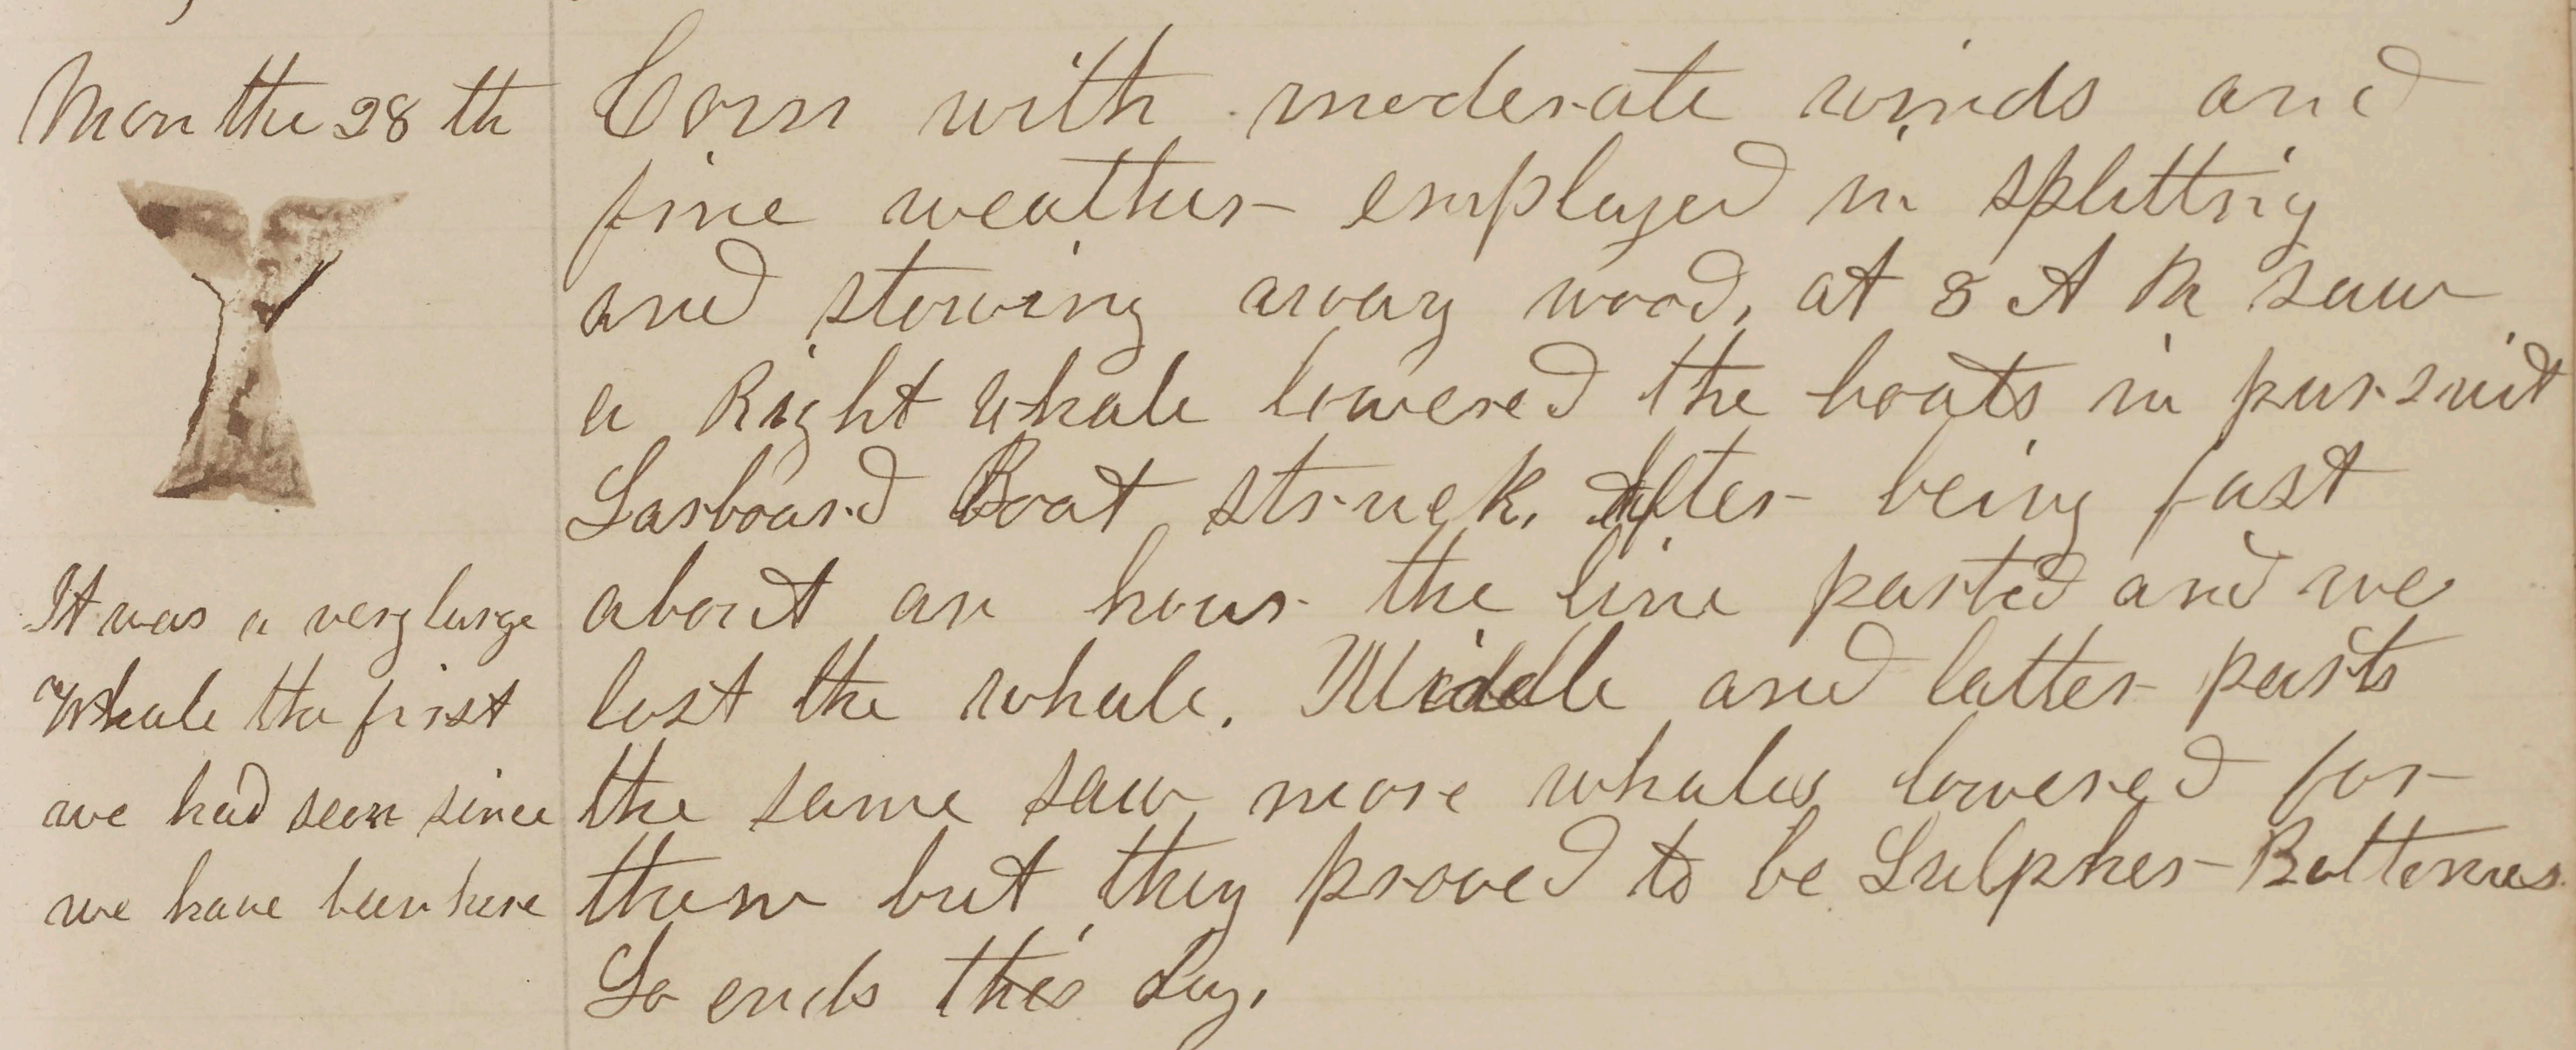 Mon the 28 th
It was a very large
Whale the first
we had seen since
we have been here
Com with moderate winds and
fine weather employed in splitting
and stowing away wood, at 8 A M saw
a Right Whale lowered the boats in pursuit
Larboard Boat struck. After being fast
about an hour the line parted and we
lost the whale. Middle and latter parts
the same saw more whales lowered for
them but they proved to be Sulpher Bottomes
So ends this Day.